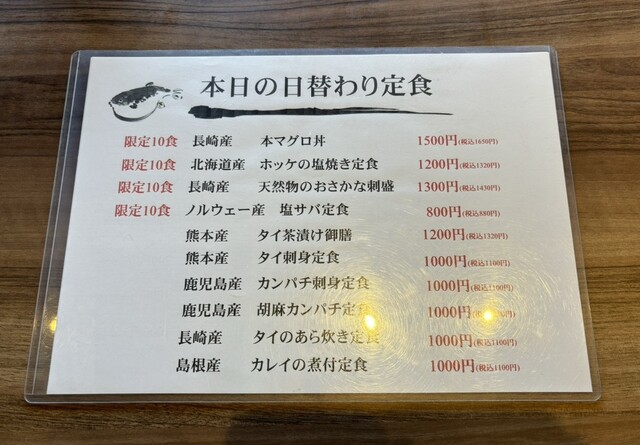 本日の日替わり定食
限定10食 長崎産 本マグロ丼 1500円(税込1650円)
限定10食 北海道産 ホッケの塩焼き定食 1200円(税込1320円)
限定10食 長崎産 天然物のおさかな刺盛 1300円(税込1430円)
限定10食 ノルウェー産 塩サバ定食 800円(税込880円)
熊本産 タイ茶漬け御膳 1200円(税込1320円)
熊本産 タイ刺身定食 1000円(税込1100円)
鹿児島産 カンパチ刺身定食 1000円(税込1100円)
鹿児島産 胡麻カンパチ定食 1000円
長崎産 タイのあら炊き定食 1000円(税込1100円)
島根産 カレイの煮付定食 1000円(税込1100円)